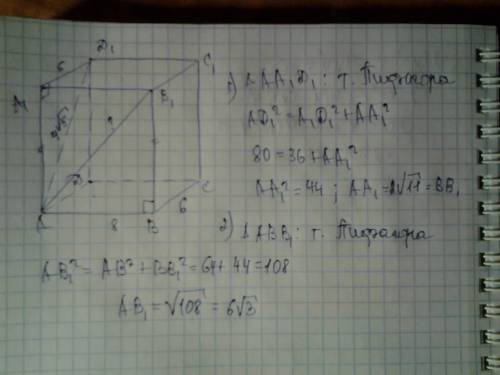 D₁
6
C₁
A₁
B₁
?
D
C
A
8
B
6
1) Δ AA₁D₁: т. Пифагора
AD₁² = A₁D₁² + AA₁²
80 = 36 + AA₁²
AA₁² = 44 ; AA₁ = 2√11 = BB₁
2) Δ ABB₁: т. Пифагора
AB₁² = AB² + BB₁² = 64 + 44 = 108
AB₁ = √108 = 6√3